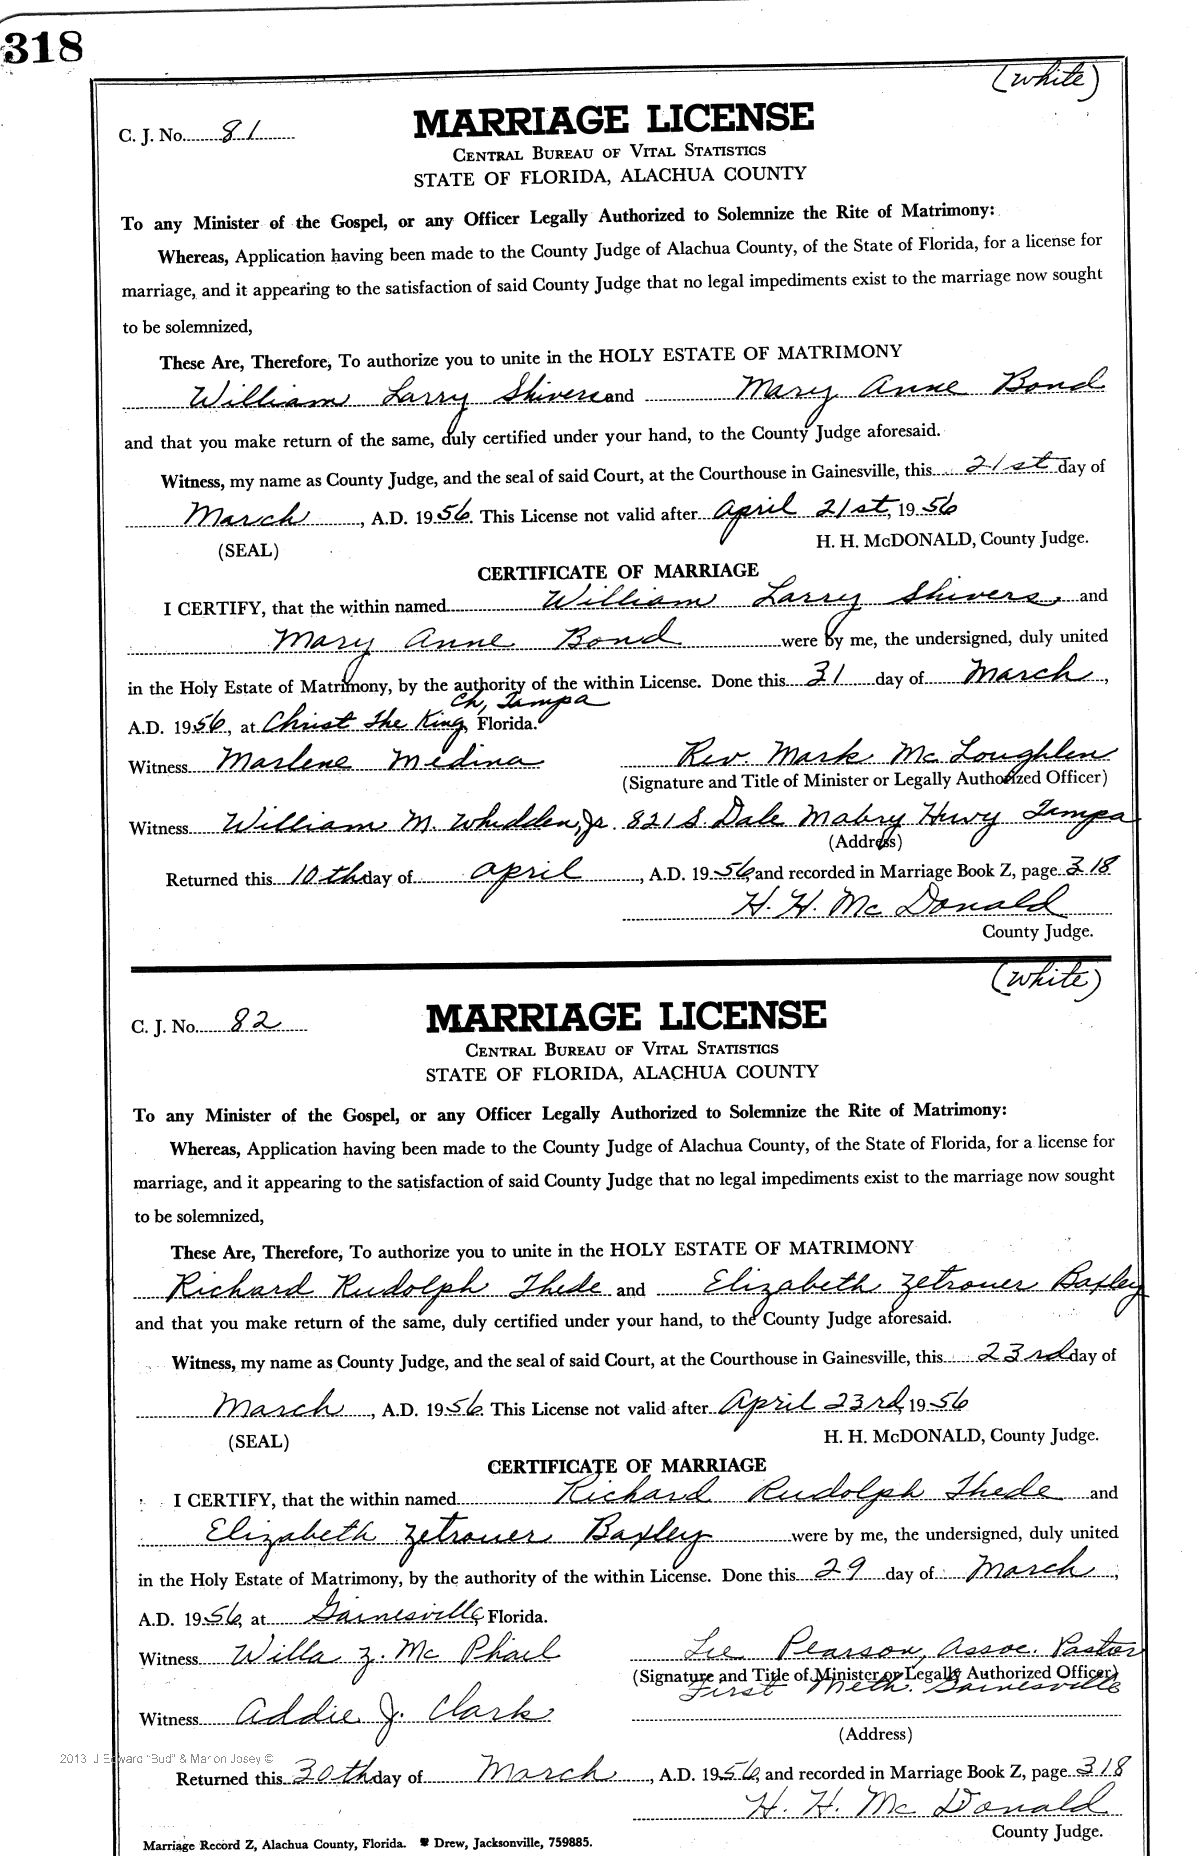 318
(White)
C. J. No. 81
MARRIAGE LICENSE
CENTRAL BUREAU OF VITAL STATISTICS
STATE OF FLORIDA, ALACHUA COUNTY
To any Minister of the Gospel, or any Officer Legally Authorized to Solemnize the Rite of Matrimony:
Whereas, Application having been made to the County Judge of Alachua County, of the State of Florida, for a license for
marriage, and it appearing to the satisfaction of said County Judge that no legal impediments exist to the marriage now sought
to be solemnized,
These Are, Therefore, To authorize you to unite in the HOLY ESTATE OF MATRIMONY
William Larry Shivers and Mary Anne Bond
and that you make return of the same, duly certified under your hand, to the County Judge aforesaid.
Witness, my name as County Judge, and the seal of said Court, at the Courthouse in Gainesville, this 21st day of
March, A.D. 1956. This License not valid after April 21st, 1956
(SEAL) H. H. McDONALD, County Judge.
CERTIFICATE OF MARRIAGE
I CERTIFY, that the within named William Larry Shivers, and
Mary Anne Bond were by me, the undersigned, duly united
in the Holy Estate of Matrimony, by the authority of the within License. Done this 31 day of March,
Ch, Tampa
A.D. 1956, at Christ the King, Florida.
Witness Marlene Medina Rev. Mark McLoughlen
(Signature and Title of Minister or Legally Authorized Officer)
Witness William M. Whidden, Jr. 821 S. Dale Mabry Huvy Tampa
(Address)
Returned this 10th day of April, A.D. 1956, and recorded in Marriage Book Z, page 318
H. H. McDonald
County Judge.
(White)
C. J. No. 82
MARRIAGE LICENSE
CENTRAL BUREAU OF VITAL STATISTICS
STATE OF FLORIDA, ALACHUA COUNTY
To any Minister of the Gospel, or any Officer Legally Authorized to Solemnize the Rite of Matrimony:
Whereas, Application having been made to the County Judge of Alachua County, of the State of Florida, for a license for
marriage, and it appearing to the satisfaction of said County Judge that no legal impediments exist to the marriage now sought
to be solemnized,
These Are, Therefore, To authorize you to unite in the HOLY ESTATE OF MATRIMONY
Richard Rudolph Thede and Elizabeth Zetrouer Baxley
and that you make return of the same, duly certified under your hand, to the County Judge aforesaid.
Witness, my name as County Judge, and the seal of said Court, at the Courthouse in Gainesville, this 23rd day of
March, A.D. 1956. This License not valid after April 23rd, 1956
(SEAL) H. H. McDONALD, County Judge.
CERTIFICATE OF MARRIAGE
I CERTIFY, that the within named Richard Rudolph Thede and
Elizabeth Zetrouer Baxley were by me, the undersigned, duly united
in the Holy Estate of Matrimony, by the authority of the within License. Done this 29 day of March,
A.D. 1956, at Gainesville, Florida.
Witness Willa Z. McPhail Lee Pearson, Assoc. Pastor
(Signature and Title of Minister or Legally Authorized Officer)
First Meth. Gainesville
Witness Addie J. Clark
(Address)
2013 J Edward "Bud" & Marion Josey ©
Returned this 30th day of March, A.D. 1956, and recorded in Marriage Book Z, page 318
H. H. McDonald
County Judge.
Marriage Record Z, Alachua County, Florida. Drew, Jacksonville, 759885.